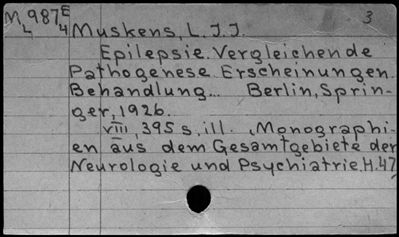 M 987 E 3
L 4 Muskens, L. J. J.
Epilepsie. Vergleichende
Pathogenese. Erscheinungen.
Behandlung... Berlin, Sprin-
ger, 1926.
VIII, 395 s, ill. (Monographi-
en aus dem Gesamtgebiete der
Neurologie und Psychiatrie. H. 47